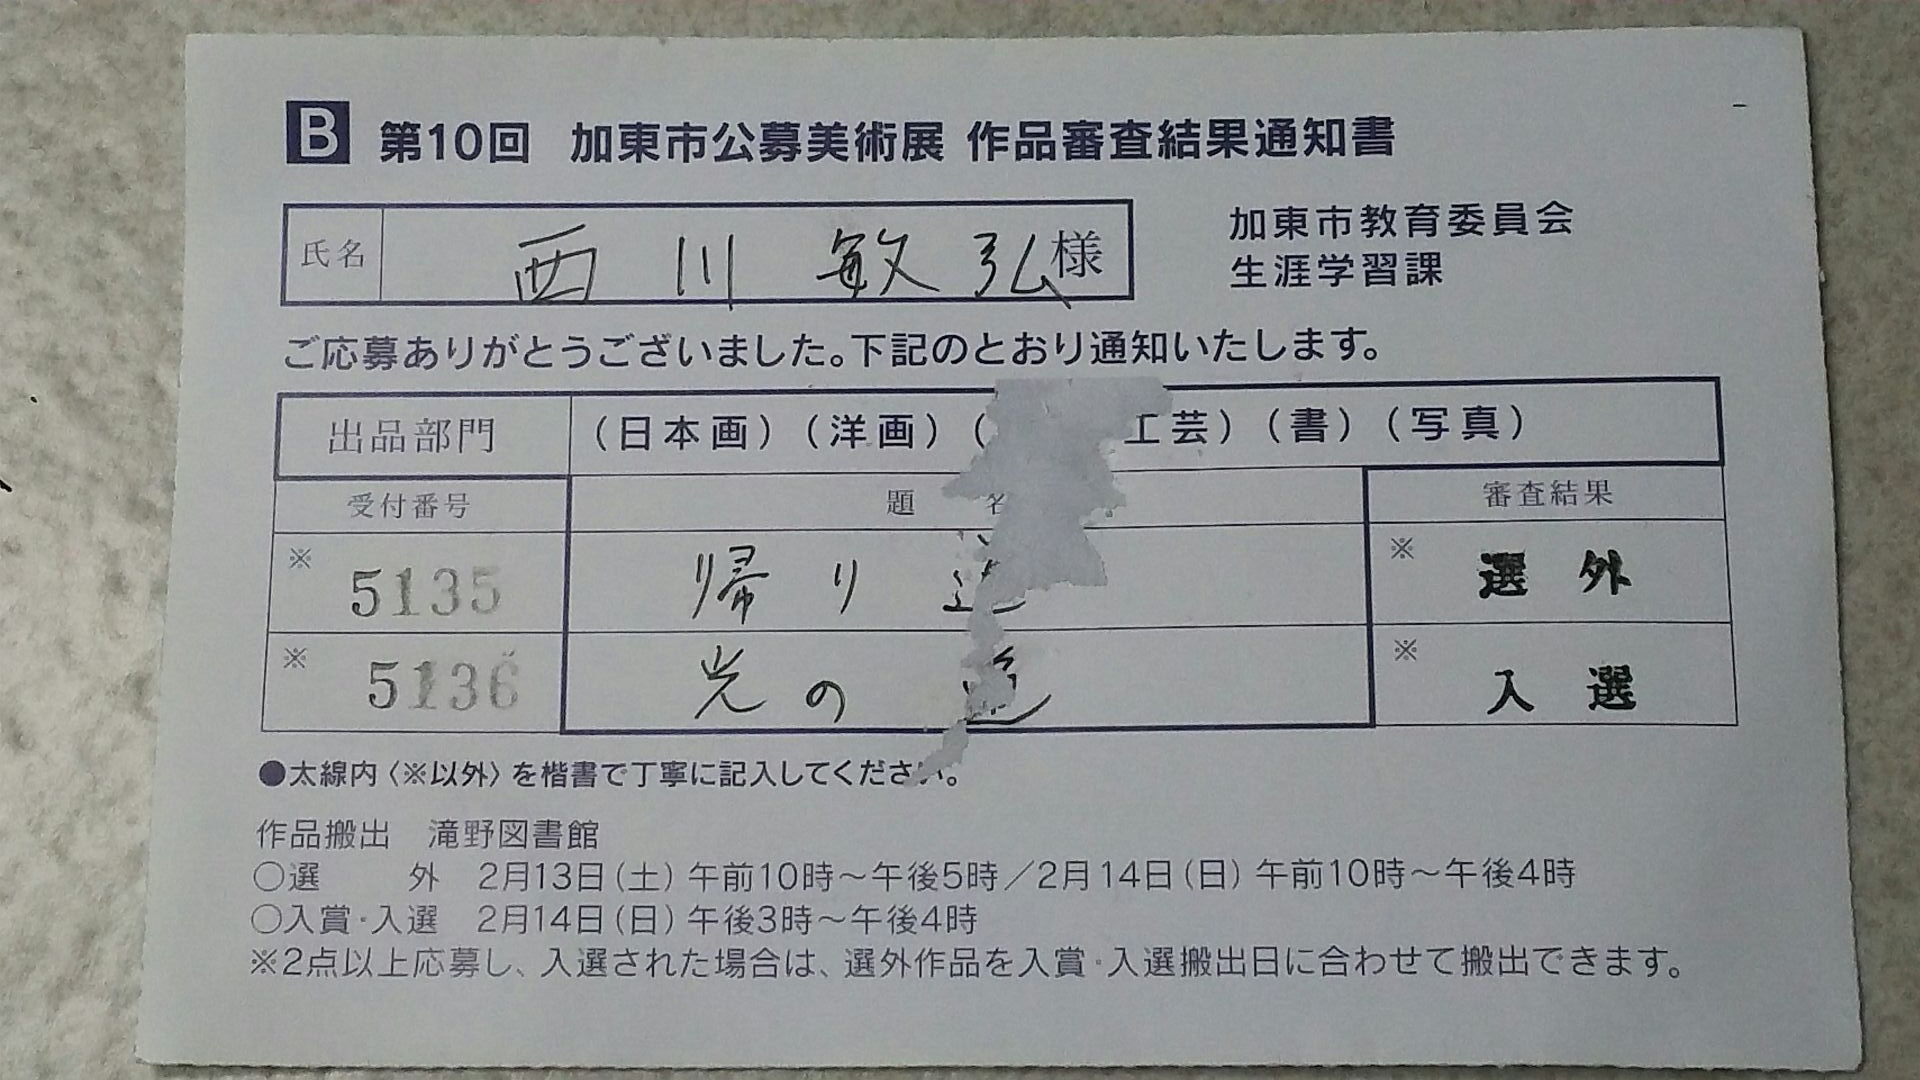 B 第10回 加東市公募美術展 作品審査結果通知書
氏名 西川 敏弘 様
加東市教育委員会
生涯学習課
ご応募ありがとうございました。下記のとおり通知いたします。
出品部門 (日本画) (洋画) ( 工芸) (書) (写真)
受付番号 題 名 審査結果
※ 5135 帰り道 ※ 選外
※ 5136 光の道 ※ 入選
●太線内〈※以外〉を楷書で丁寧に記入してください。
作品搬出 滝野図書館
○選 外 2月13日(土)午前10時～午後5時/2月14日(日)午前10時～午後4時
○入賞・入選 2月14日(日)午後3時～午後4時
※2点以上応募し、入選された場合は、選外作品を入賞・入選搬出日に合わせて搬出できます。